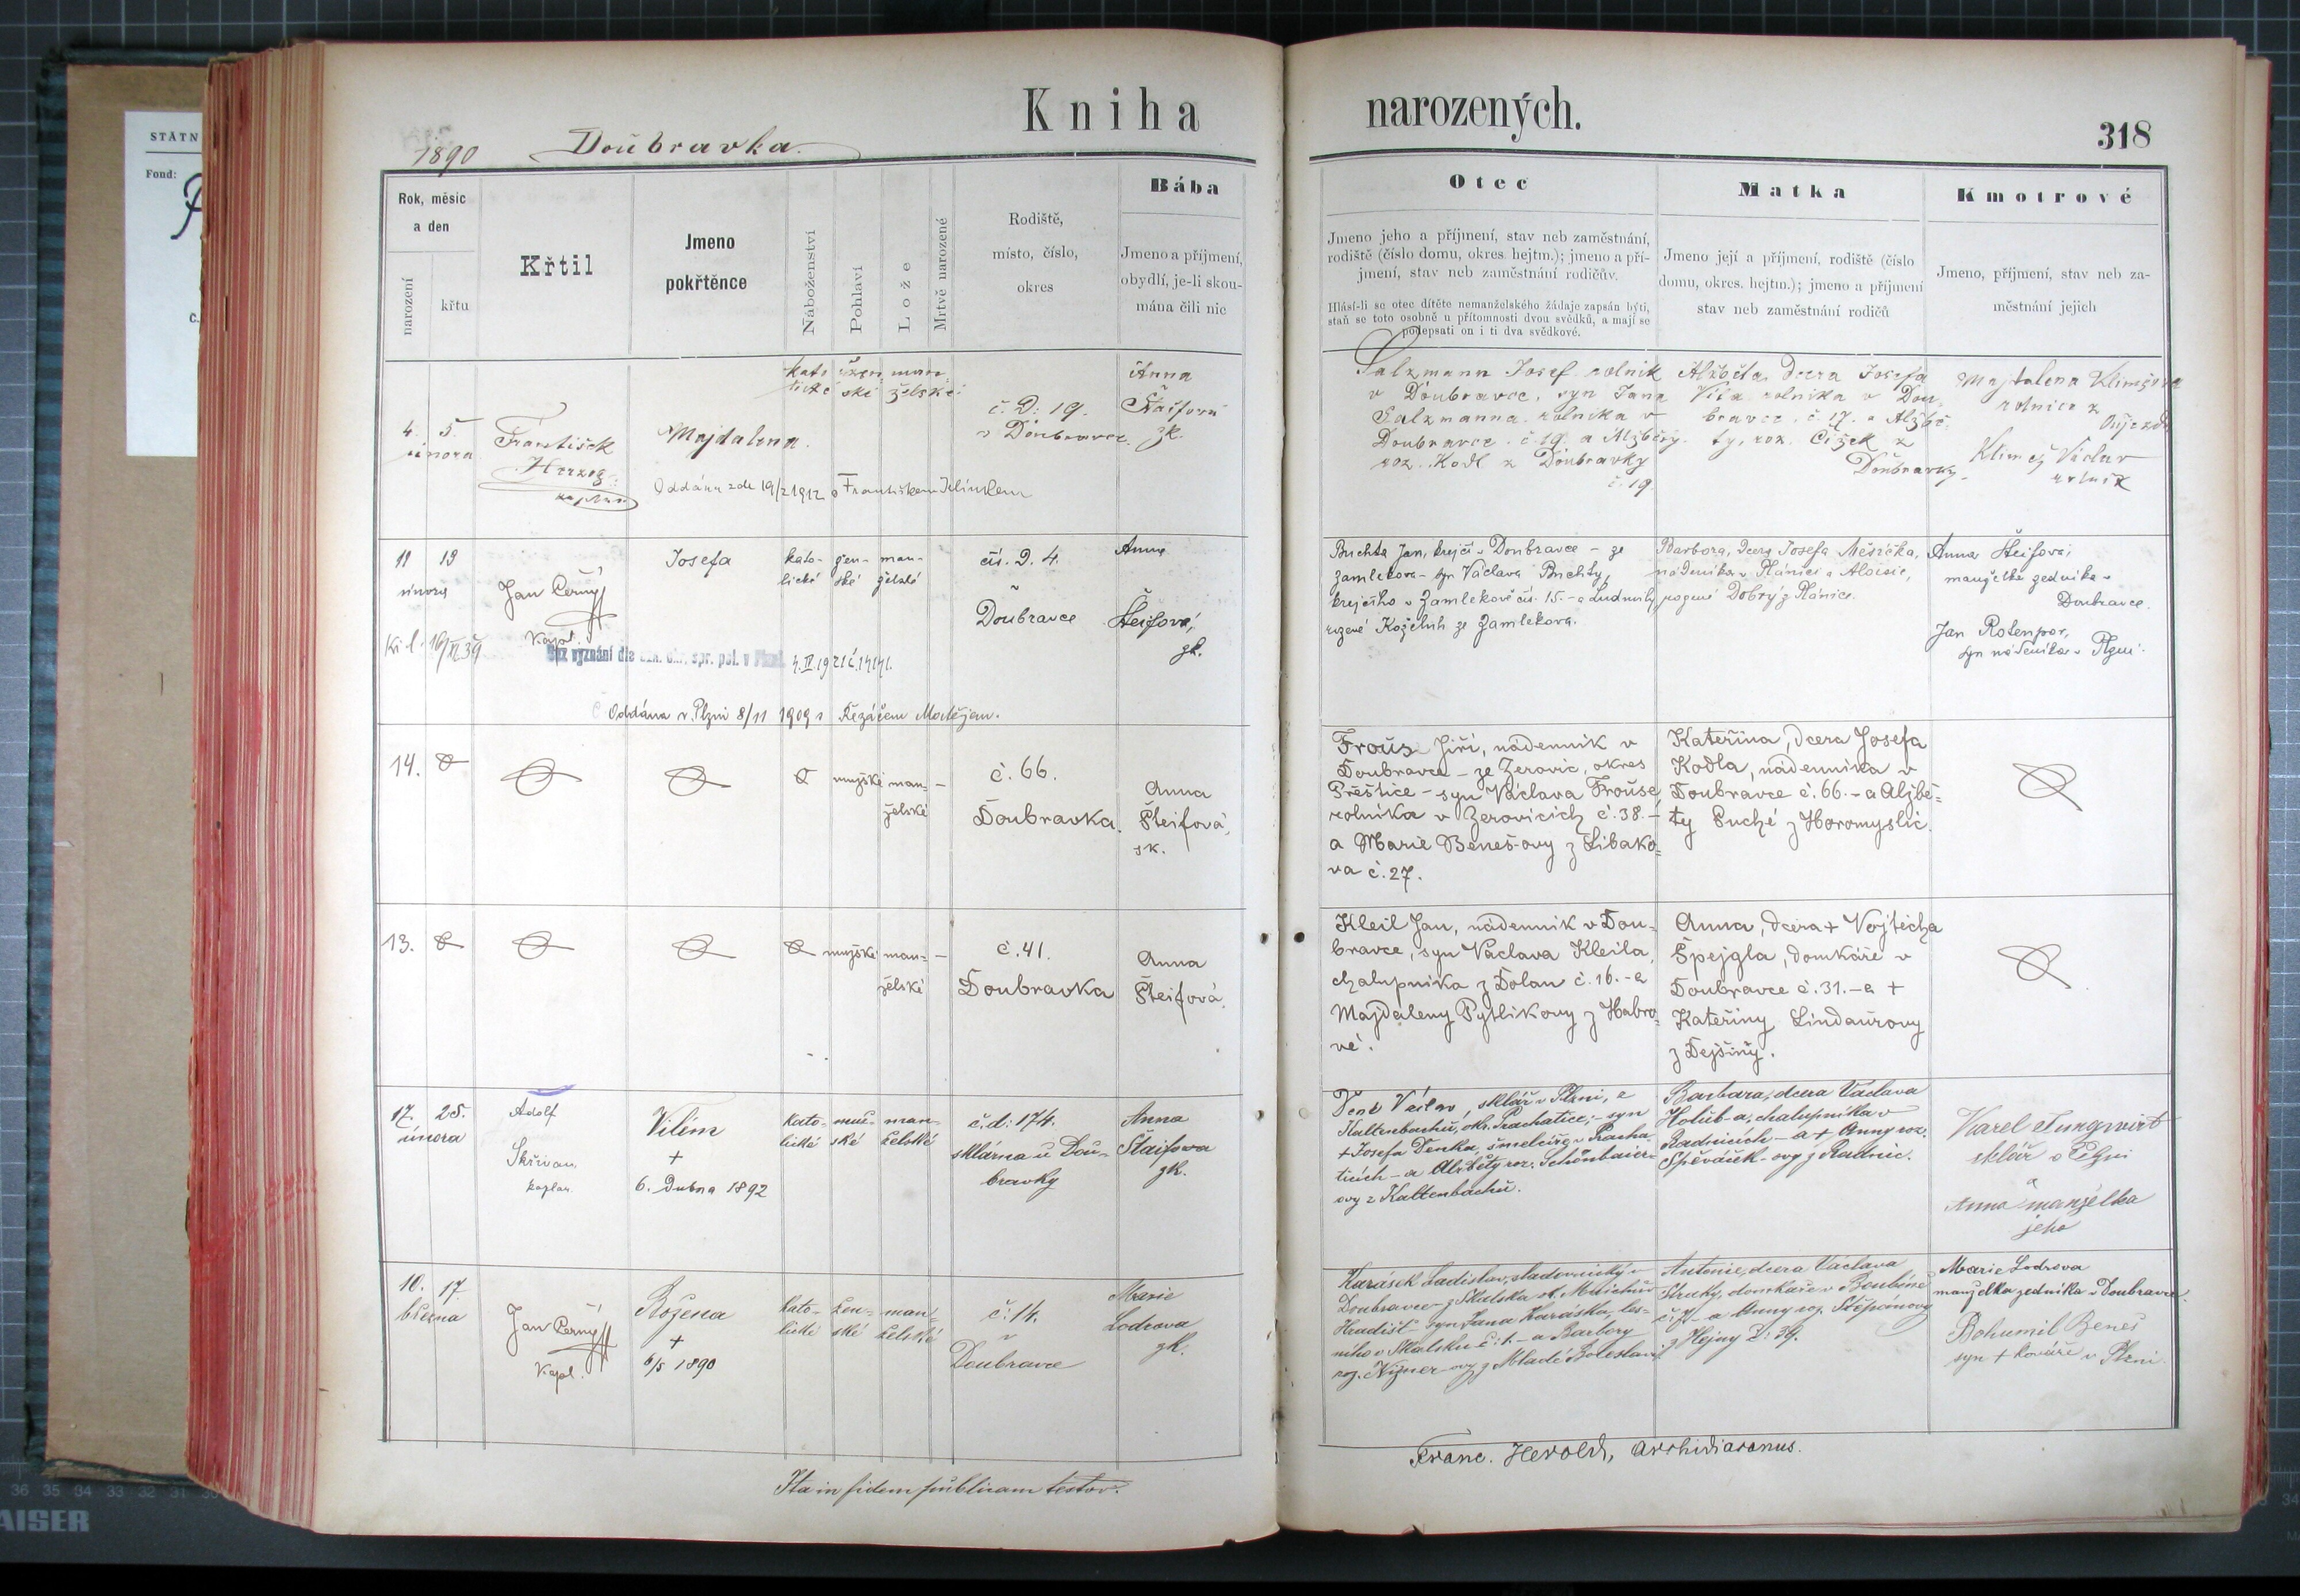 STÁTN
Fond:
Kniha narozených.
318
1890 Doubravka.
Rok, měsíc
a den
narození
křtu
Křtil
Jmeno
pokřtěnce
Náboženství
Pohlaví
Lože
Mrtvě narozené
Rodiště,
místo, číslo,
okres
Bába
Jmeno a příjmení,
obydlí, je-li skou-
mána čili nic
Otec
Jmeno jeho a příjmení, stav neb zaměstnání,
rodiště (číslo domu, okres. hejtm.); jmeno a pří-
jmení, stav neb zaměstnání rodičův.
Hlásí-li se otec dítěte nemanželského žádaje zapsán býti,
staň se toto osobně u přítomnosti dvou svědků, a mají se
podepsati on i ti dva svědkové.
Matka
Jmeno její a příjmení, rodiště (číslo
domu, okres. hejtm.); jmeno a příjmení
stav neb zaměstnání rodičů
Kmotrové
Jmeno, příjmení, stav neb za-
městnání jejich
4. 5.
února
František
Herzog
kaplan
Majdalena.
Oddána zde 19/2 1912 s Františkem Jelínkem
kato
lické
žen
ské
man
želské
č. D: 19.
v Doubravce.
Anna
Štaifová
zk.
Salzmann Josef rolník
v Doubravce, syn Jana
Salzmanna rolníka v
Doubravce č. 19 a Alžběty
roz. Kodl z Doubravky
č. 19.
Alžběta dcera Josefa
Víta rolníka v Dou-
bravce č. 17. a Alžbě-
ty, roz. Čížek z
Doubravky.
Majdalena Klimešova
rolnice z
Újezda
Klimeš Václav
rolník
11 13
února
Jan Černý
kapl.
Josefa
kato-
lické
žen-
ské
man-
želské
čís. D. 4.
Doubravce
Anna
Šteifová,
zk.
Bez vyznání dle
Oddána v Plzni 8/11 1909 s Řezáčem Matějem.
Buchta Jan, krejčí v Doubravce – ze
Zamlekova – syn Václava Buchty,
krejčího v Zamlekově čís. 15. – a Ludmily
rozené Koželuh ze Zamlekova.
Barbora, dcera Josefa Měsíčka,
nádeníka v Plánici a Aloisie,
rozené Dobrý z Plánice.
Anna Šteifova,
manželka zedníka v
Doubravce.
Jan Rotenpor,
syn nádeníka v Plzni.
14.
mužské
man-
želské
–
č. 66.
Doubravka.
Anna
Šteifová,
zk.
Frouz Jiří, nádenník v
Doubravce – ze Zerovic, okres
Přeštice – syn Václava Frouse,
rolníka v Zerovicích č. 38. –
a Marie Beneš-ovy z Libako-
va č. 27.
Kateřina, dcera Josefa
Kodla, nádenníka v
Doubravce č. 66. – a Alžbě-
ty Suché z Horomyslic.
13.
mužské
man-
želské
–
č. 41.
Doubravka
Anna
Šteifová.
Kleil Jan, nádenník v Dou-
bravce, syn Václava Kleila,
chalupníka z Dolan č. 16. – a
Majdaleny Pytlíkovy z Habro-
vé.
Anna, dcera + Vojtěcha
Špejgla, domkáře v
Doubravce č. 31. – a +
Kateřiny Lindaurovy
z Dejšiny.
17. 25.
února
Adolf
Skřivan,
kaplan
Vilém
+
6. Dubna 1892
kato-
lické
muž-
ské
man-
želské
č. d: 174.
sklárna u Dou-
bravky
Anna
Štaifova
zk.
Denk Václav, sklář v Plzni, z
Kaltenbachu, okr. Prachatice; – syn
+ Josefa Denka,
– a Alžběty roz. Schönbaier-
ovy z Kaltenbachu.
Barbara, dcera Václava
Holub-a, chalupníka v
Radnicích – a + Anny roz.
Spěváček-ovy z Radnic.
Karel Jungwirt
sklář v Plzni
a
Anna manželka
jeho
10. 17.
března
Jan Černý
Kapl.
Božena
+
6/5 1890
kato-
lické
žen-
ské
man-
želské
č: 14.
Doubravce
Marie
Lodrova
zk.
Karásek Ladislav, sladovnický v
Doubravce – z Skalska ok. Mnichov.
Hradišť – syn Jana Karáska, les-
ního v Skalsku č: 1. – a Barbory
roz. Nigner-ovy z Mladé Boleslavi
Antonie, dcera Václava
Struky, domkáře v
– a Anny roz. Štěpánovy
z Hejny D: 39.
Marie Lodrova
manželka zedníka v Doubravce.
Bohumil Beneš
syn + kováře v Plzni.
Ita in fidem publicam testor.
Franc. Herold, Archidiaconus.